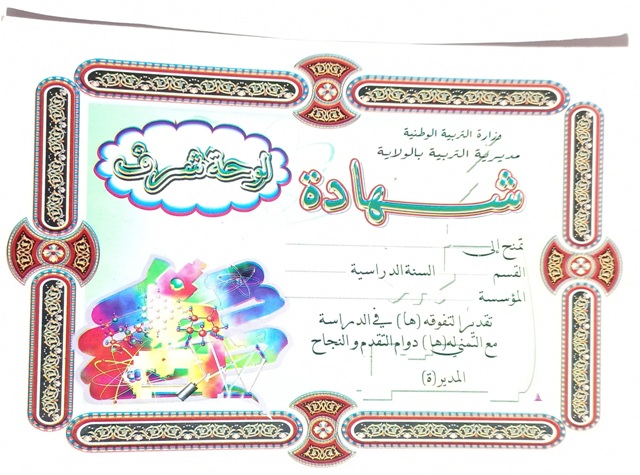 وزارة التربية الوطنية
مديرية التربية بالولاية
لوحة شرف
شهادة
تمنح إلى
القسم السنة الدراسية
المؤسسة
تقديرا لتفوقه (ها) في الدراسة
مع التمني له(ها) دوام التقدم والنجاح
المدير(ة)